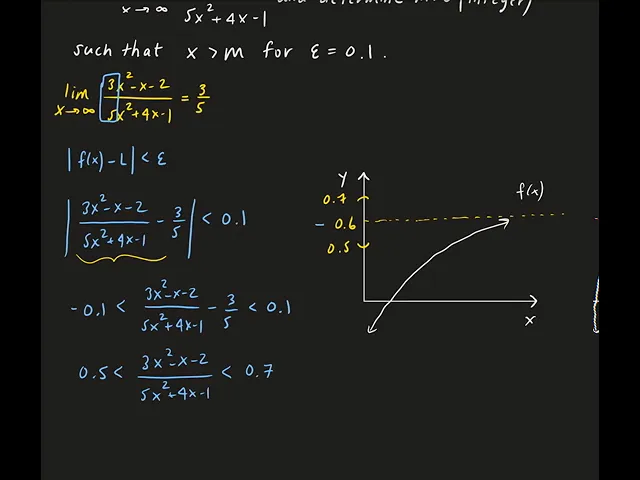 x→∞ 5x²+4x-1
such that x > m for ε = 0.1.
lim x→∞ (3x²-x-2)/(5x²+4x-1) = 3/5
|f(x) - L| < ε
|(3x²-x-2)/(5x²+4x-1) - 3/5| < 0.1
-0.1 < (3x²-x-2)/(5x²+4x-1) - 3/5 < 0.1
0.5 < (3x²-x-2)/(5x²+4x-1) < 0.7
y
0.7
- 0.6
0.5
f(x)
x